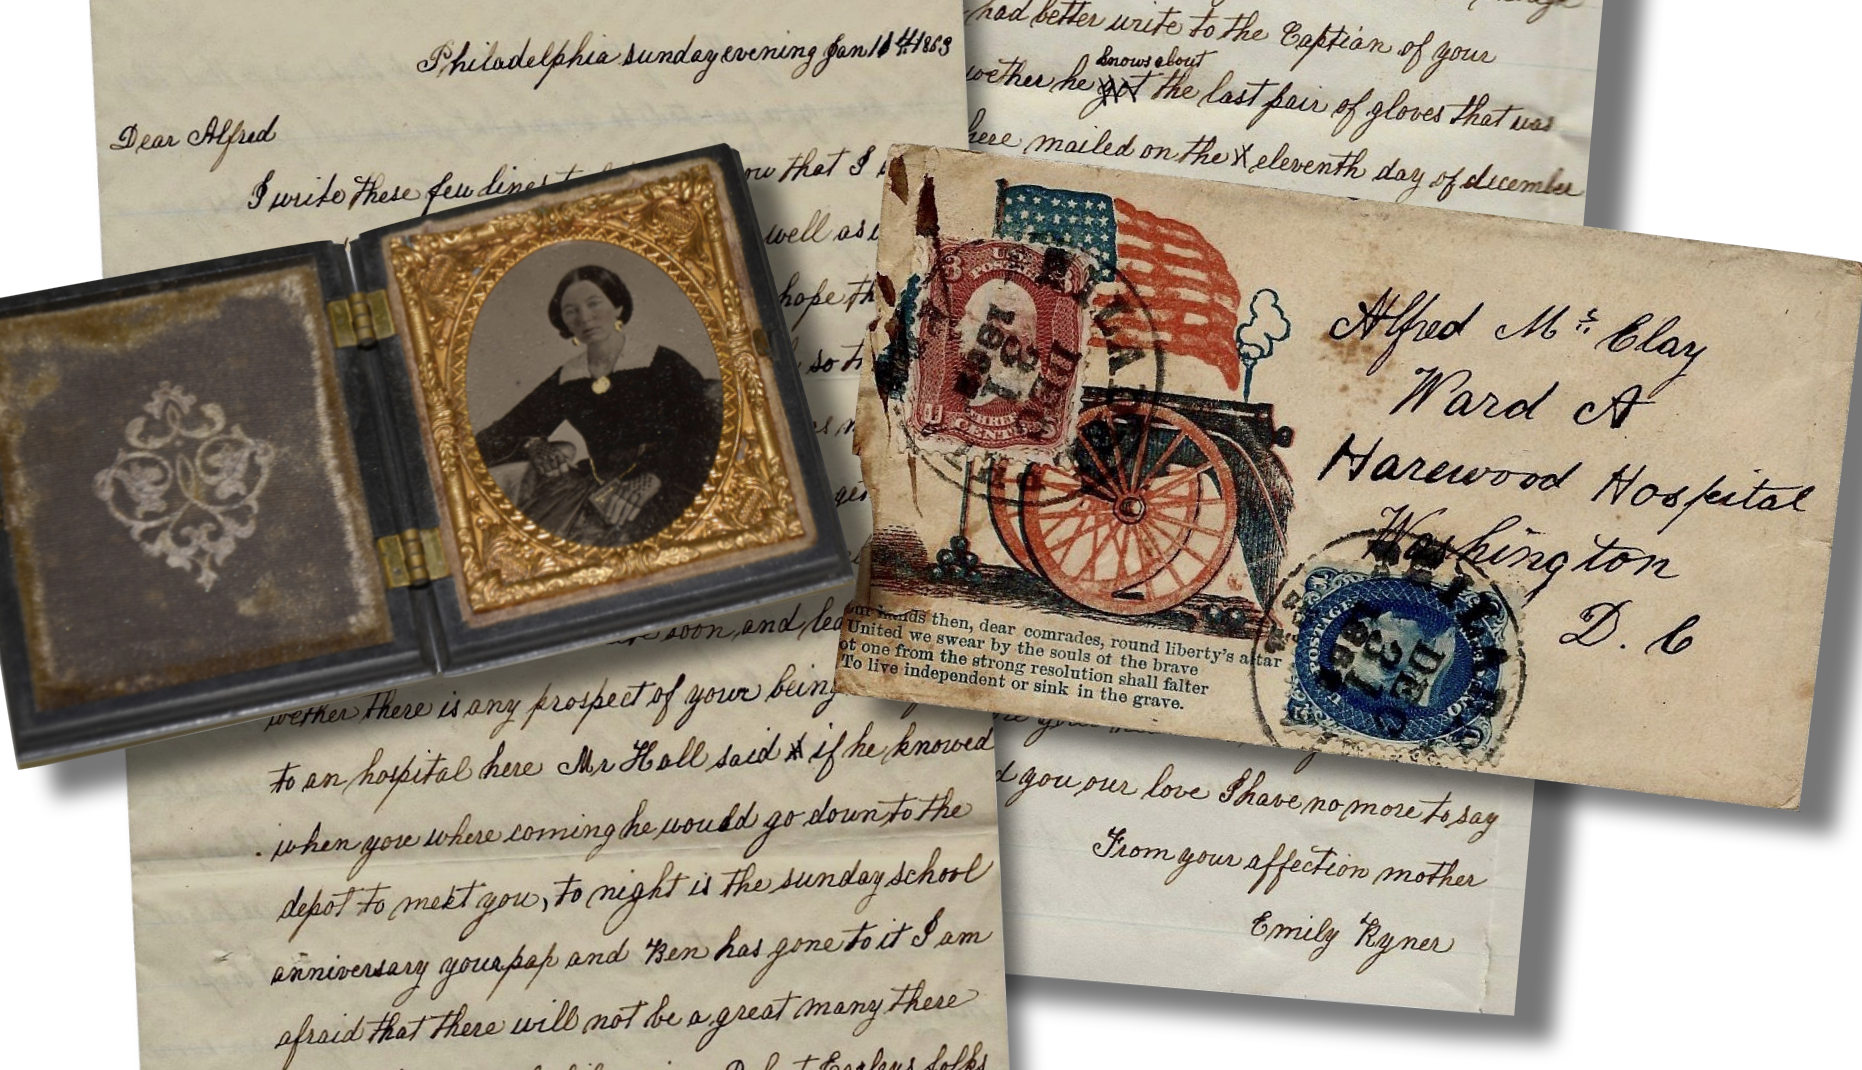 Philadelphia sunday evening Jan 11th 1863
Dear Alfred
I write these few lines to that I
well as
hope
so
soon, and
wether there is any prospect of your being
to an hospital here Mr Hall said if he knowed
when you where coming he would go down to the
depot to meet you, to night is the sunday school
anniversary your pap and Ben has gone to it I am
afraid that there will not be a great many there
folks
had better write to the Captian of your
knows about
wether he got the last pair of gloves that was
here mailed on the X eleventh day of december
you our love I have no more to say
From your affection mother
Emily Ryner
U.S. POSTAGE
3
THREE
CENTS
PHILADELPHIA
DEC
31
Alfred Mc Clay
Ward A
Harewood Hospital
Washington
D. C
hands then, dear comrades, round liberty's altar
United we swear by the souls of the brave
ot one from the strong resolution shall falter
To live independent or sink in the grave.
POSTAGE
ONE
DEC
31